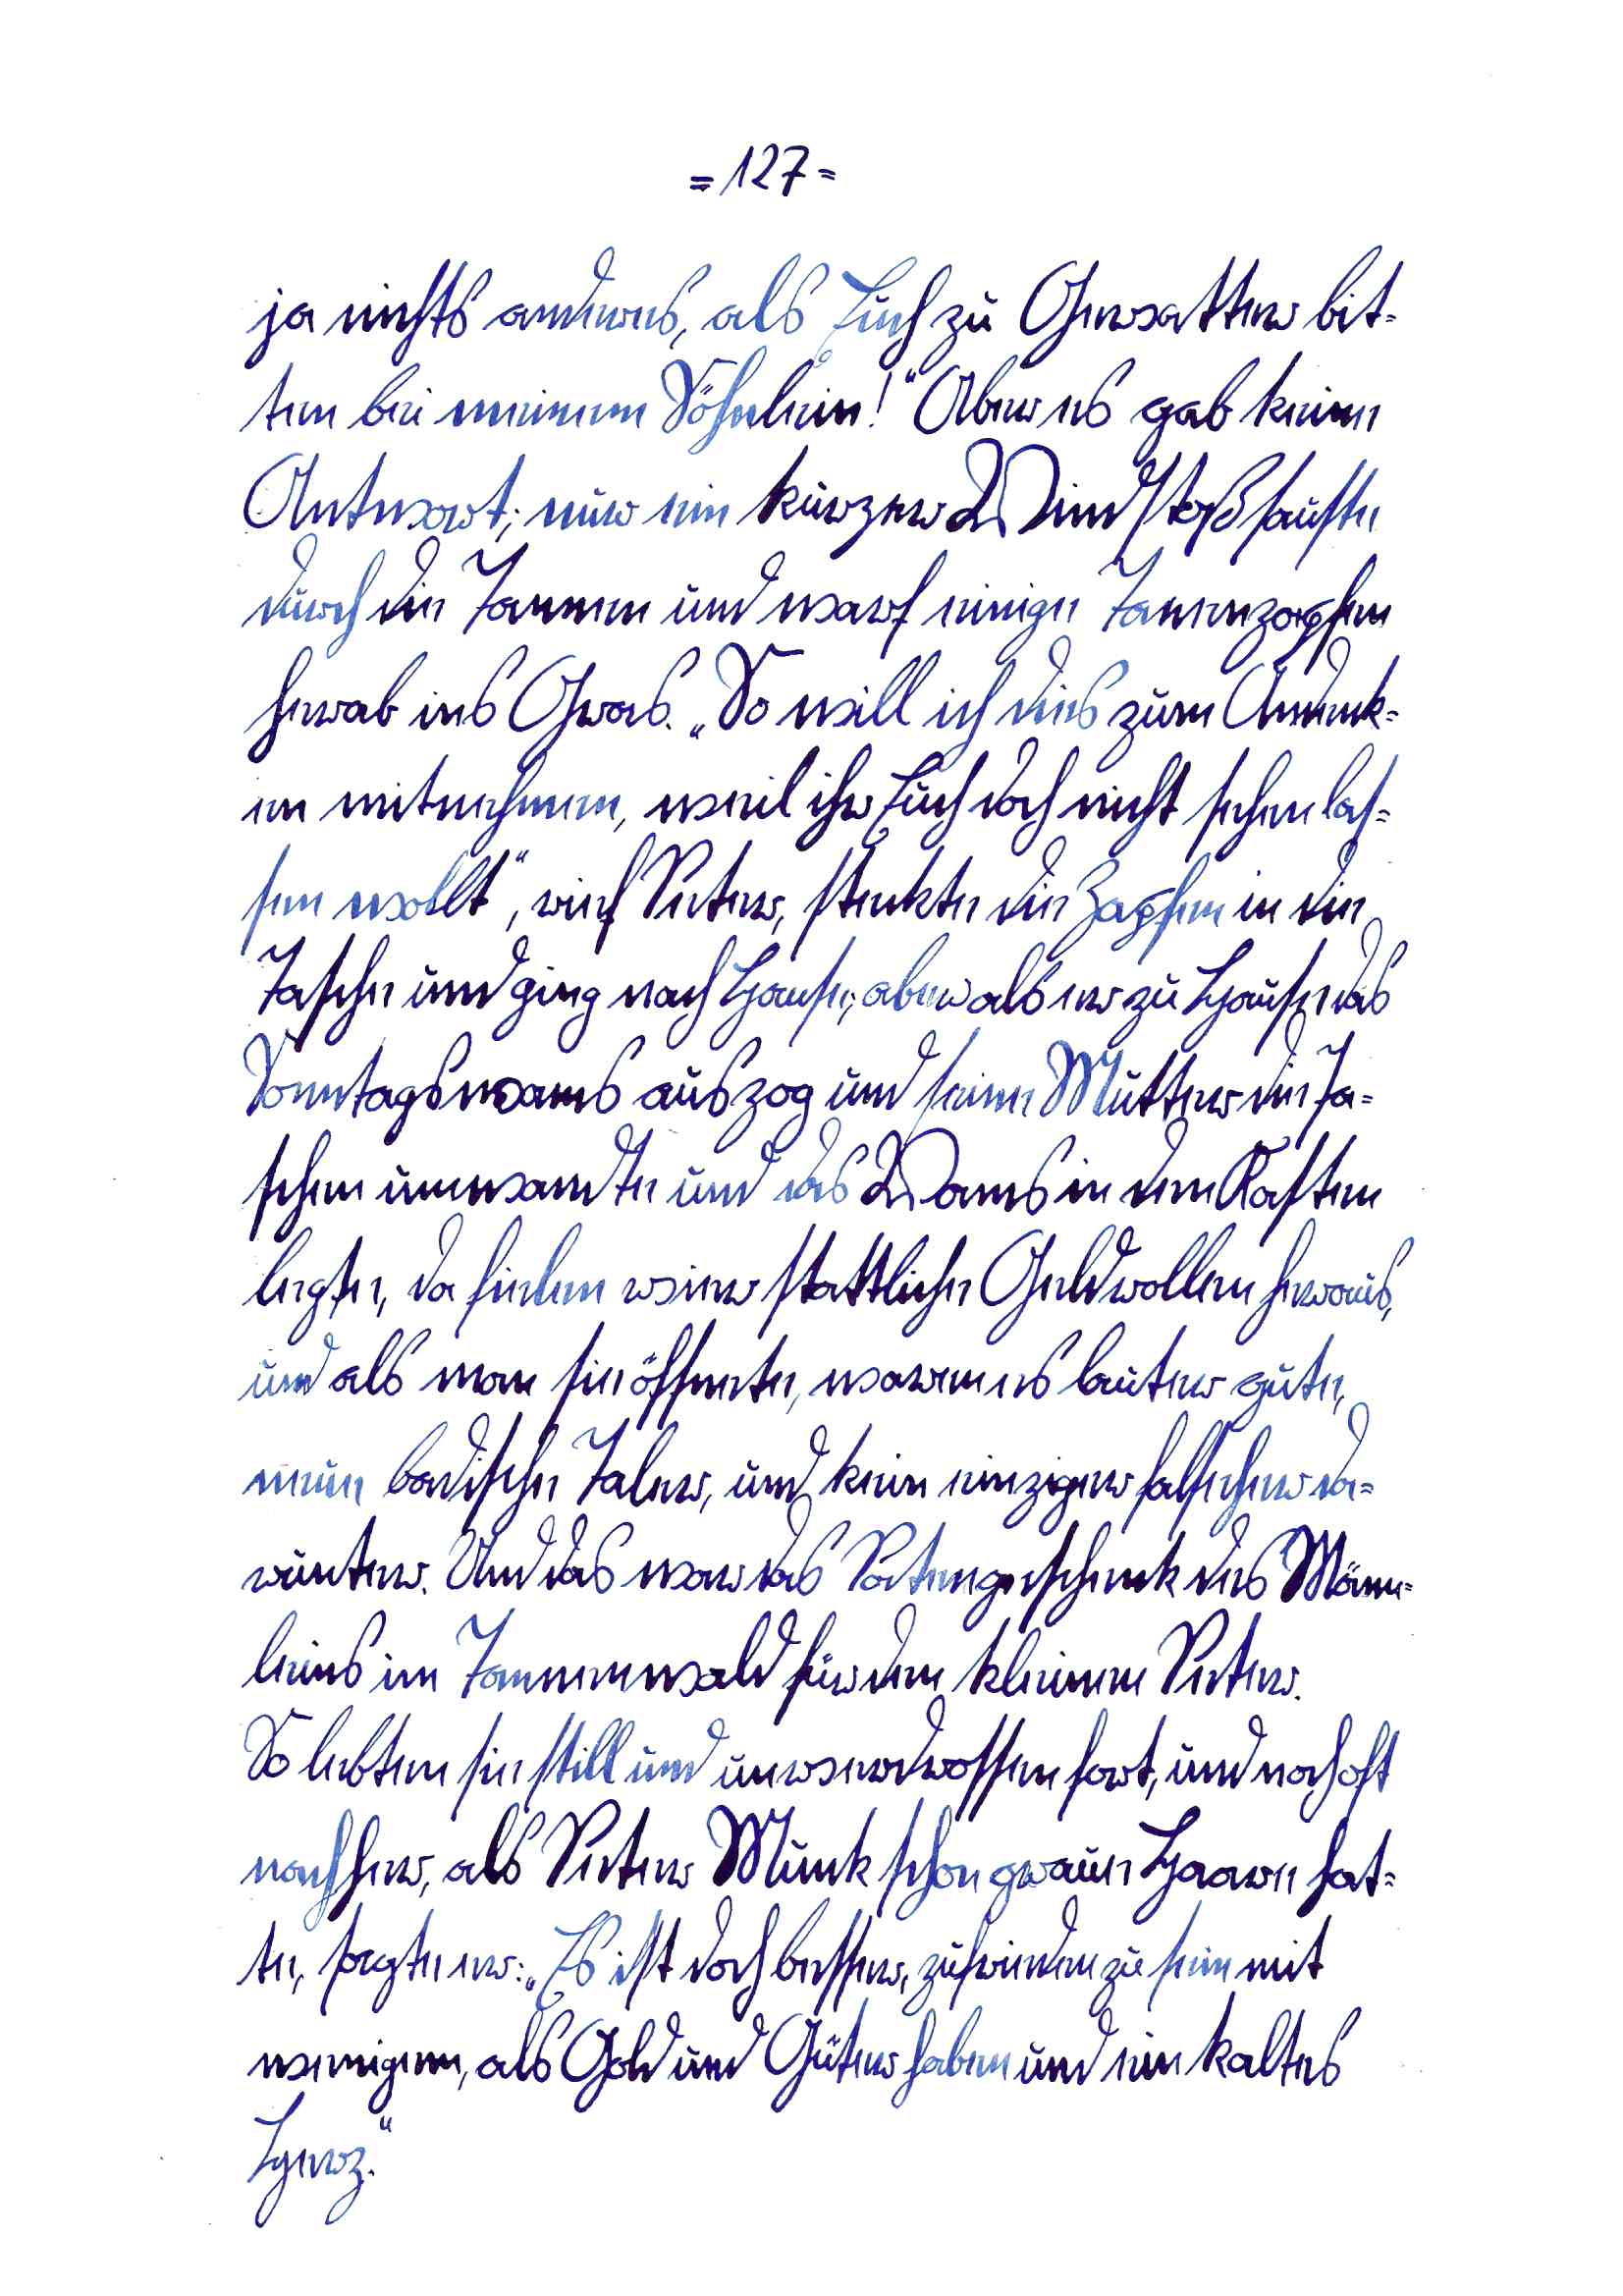 = 127 =
ja nichts anderes, als Euch zu Gevatter bit=
ten bei meinem Söhnlein!“ Aber es gab keine
Antwort; nur ein kurzer Windstoß sauste
durch die Tannen und warf einige Tannenzapfen
herab ins Gras. „So will ich dies zum Andenk=
en mitnehmen, weil ihr Euch doch nicht sehen las=
sen wollt“, rief Peter, steckte die Zapfen in die
Tasche und ging nach Hause; aber als er zu Hause das
Sonntagswams auszog und seine Mutter die Ta=
schen umwandte und das Wams in den Kasten
legte, da fielen vier stattliche Geldrollen heraus,
und als man sie öffnete, waren es lauter gute,
neue badische Taler, und kein einziger falscher da=
runter. Und das war das Patengeschenk des Männ=
leins im Tannenwald für den kleinen Peter.
So lebten sie still und unverdrossen fort, und noch oft
nachher, als Peter Munk schon graue Haare hat=
te, sagte er: „Es ist doch besser, zufrieden zu sein mit
wenigem, als Gold und Güter haben und ein kaltes
Herz.“